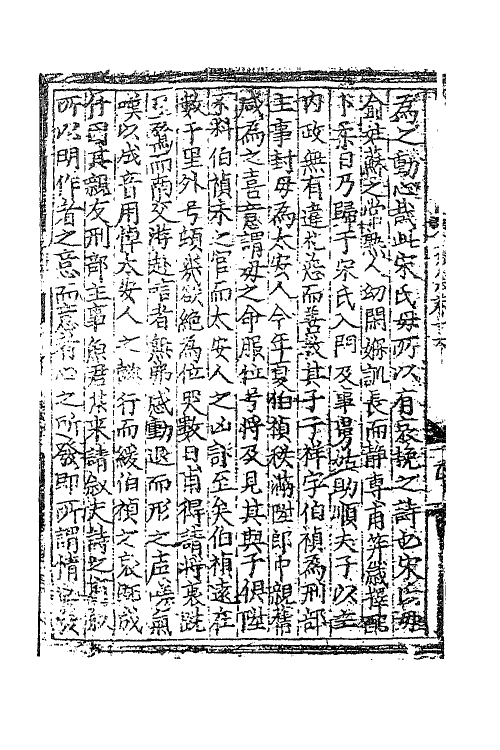 為之動心哉此宋氏母所以有哀挽之詩也宋氏母
金姓蘇之常熟人幼閑姆訓長而靜專甫筓歲擇配
下乃歸于宋氏入門及事舅姑助順夫子以主
內政無有違範而善教其子子祥字伯禎為刑部
主事封母為太安人今年夏伯禎秩滿陞郎中親舊
咸為之喜意謂母之命服位号將及見其與子俱陞
不料伯禎未之官而太安人之凶訃至矣伯禎遠在
數千里外号頓幾欲絕為位哭數日甫得請將衰跣
至驚而商交游赴唁者無弗感動退而形之声嗟氣
嘆以成音用悼太安人之懿行而緩伯禎之哀既成
什其親友刑部主事魚君某來請敘夫詩之敘
所以明作者之意而意者心之所發即所謂情